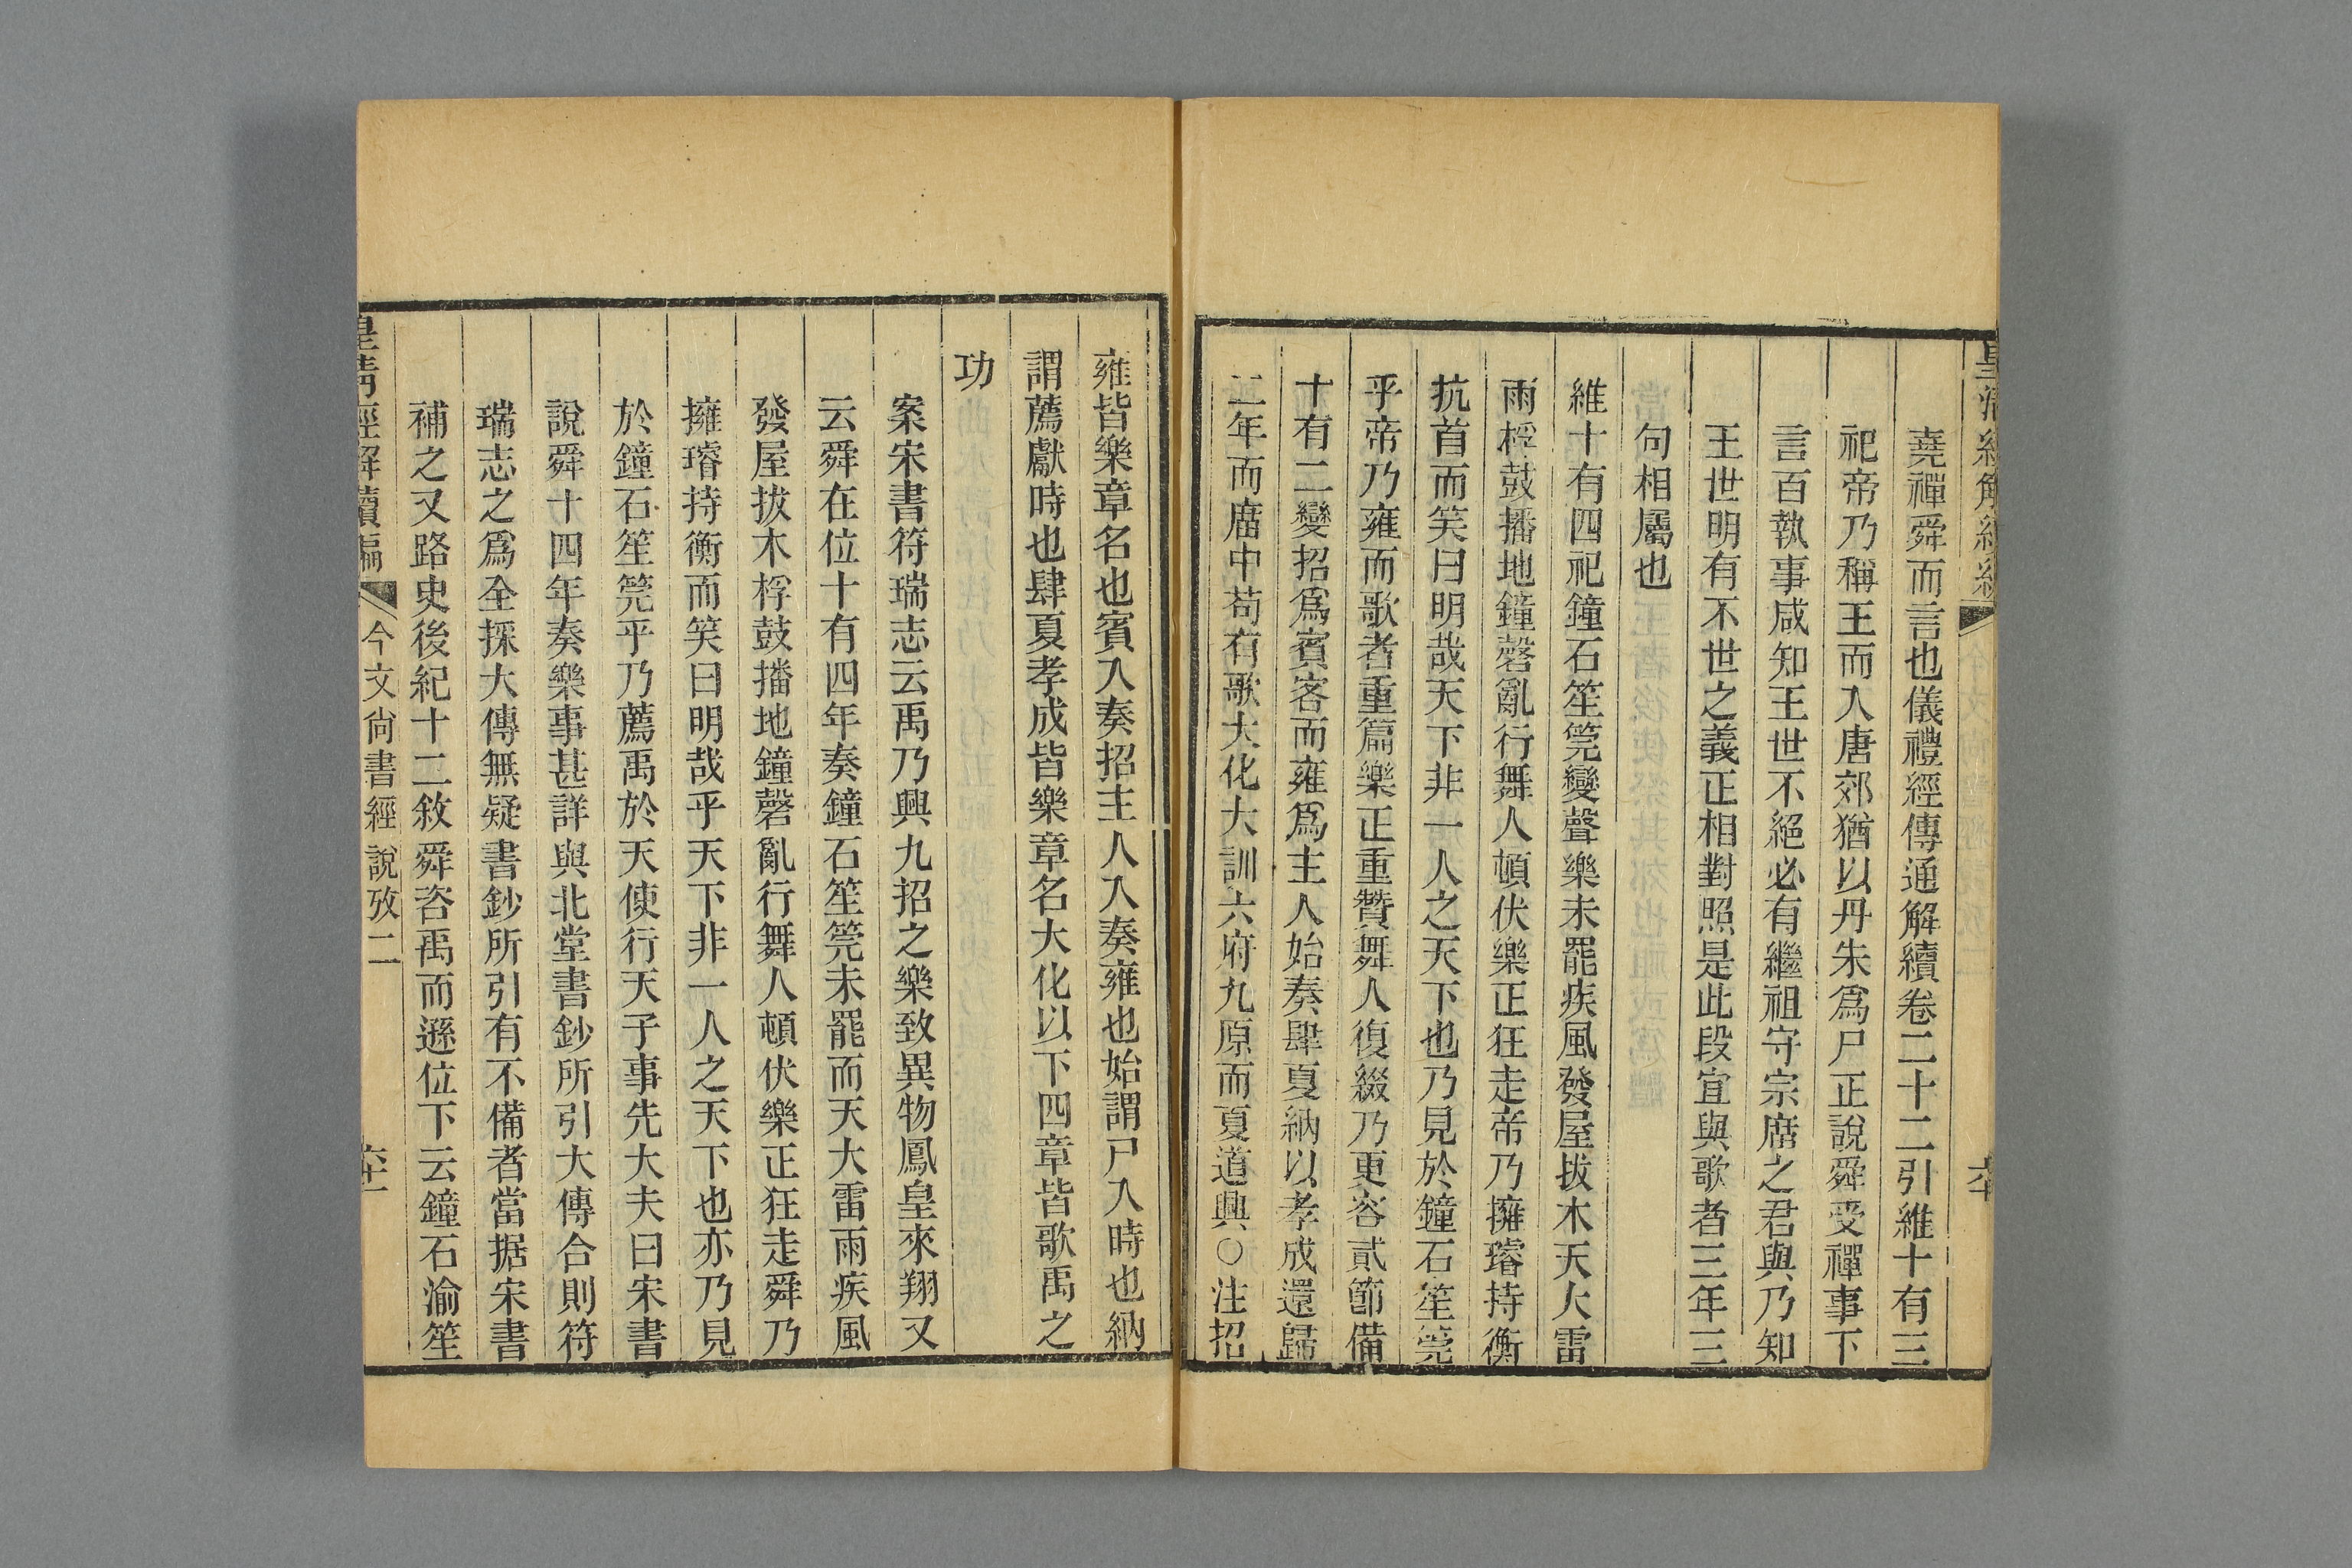 皇清經解續編
六十
堯禪舜而言也儀禮經傳通解續卷二十二引維十有三
祀帝乃稱王而入唐郊猶以丹朱爲尸正說舜受禪事下
言百執事咸知王世不絕必有繼祖守宗庿之君與乃知
王世明有不世之義正相對照是此段宜與歌者三年三
句相屬也
維十有四祀鐘石笙筦變聲樂未罷疾風發屋拔木天大雷
雨桴鼓播地鐘磬亂行舞人頓伏樂正狂走帝乃擁璿持衡
抗首而笑曰明哉天下非一人之天下也乃見於鐘石笙筦
乎帝乃雍而歌者重篇樂正重贊舞人復綴乃更容貳節備
十有二變招爲賓客而雍爲主人始奏肆夏納以孝成還歸
二年而庿中苟有歌大化大訓六府九原而夏道興○注招
雍皆樂章名也賓入奏招主人入奏雍也始謂尸入時也納
謂薦獻時也肆夏孝成皆樂章名大化以下四章皆歌禹之
功
案宋書符瑞志云禹乃興九招之樂致異物鳳皇來翔又
云舜在位十有四年奏鐘石笙筦未罷而天大雷雨疾風
發屋拔木桴鼓播地鐘磬亂行舞人頓伏樂正狂走舜乃
擁璿持衡而笑曰明哉乎天下非一人之天下也亦乃見
於鐘石笙筦乎乃薦禹於天使行天子事先大夫曰宋書
說舜十四年奏樂事甚詳與北堂書鈔所引大傳合則符
瑞志之爲全採大傳無疑書鈔所引有不備者當据宋書
補之又路史後紀十二敘舜咨禹而遜位下云鐘石渝笙
皇清經解續編
今文尙書經說攷二
六十一